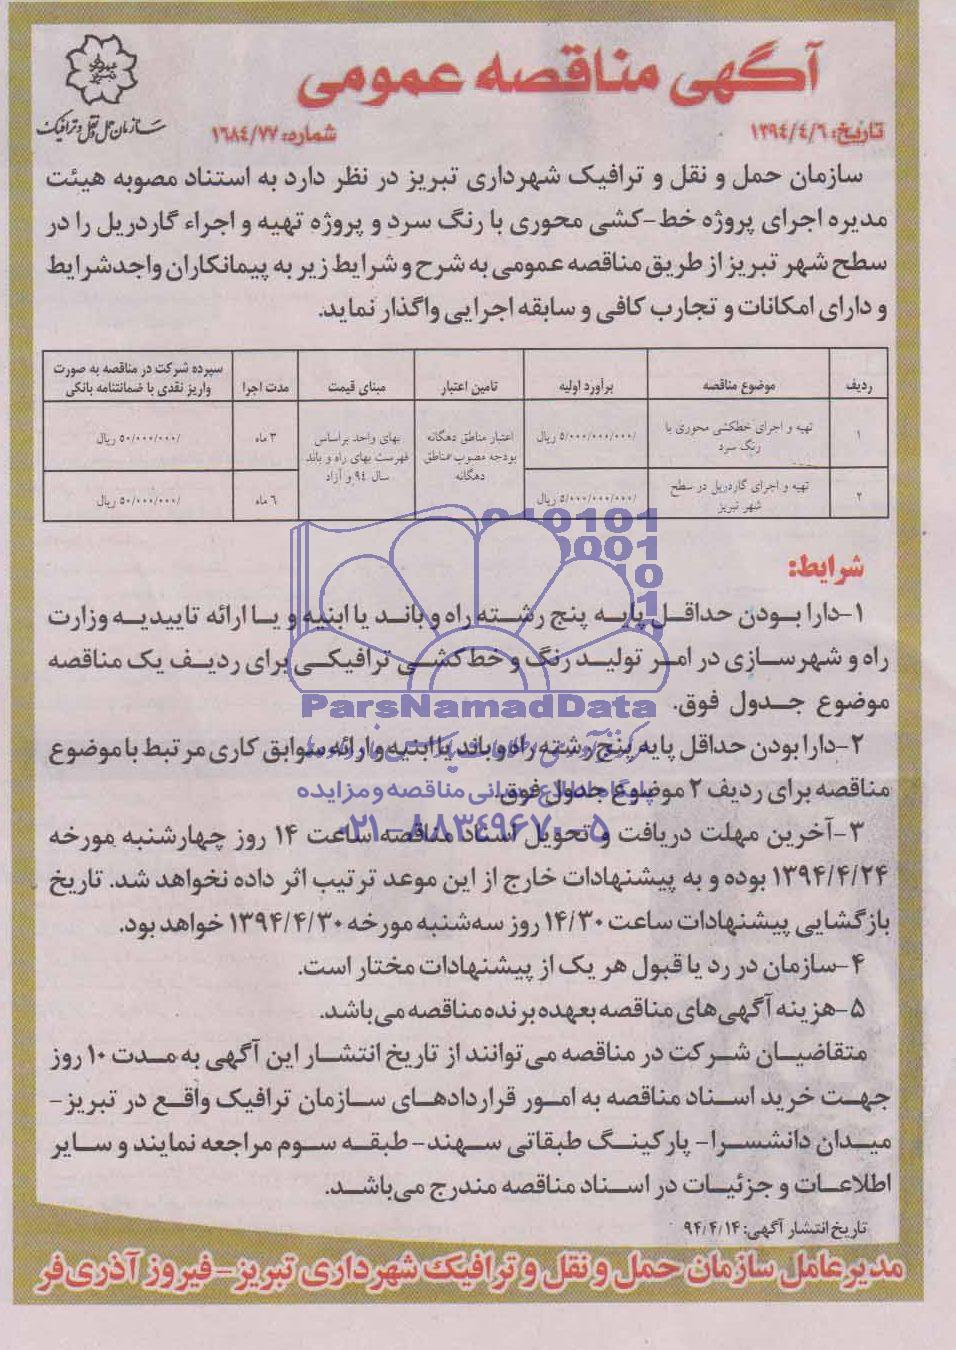 آگهی مناقصه عمومی
سازمان حمل و نقل و ترافیک
تاریخ: ۱۳۹٤/٤/٦
شماره: ۱٦۸٤/۷۷
سازمان حمل و نقل و ترافیک شهرداری تبریز در نظر دارد به استناد مصوبه هیئت
مدیره اجرای پروژه خط-کشی محوری با رنگ سرد و پروژه تهیه و اجراء گاردریل را در
سطح شهر تبریز از طریق مناقصه عمومی به شرح و شرایط زیر به پیمانکاران واجدشرایط
و دارای امکانات و تجارب کافی و سابقه اجرایی واگذار نماید.
ردیف | موضوع مناقصه | برآورد اولیه | تامین اعتبار | مبنای قیمت | مدت اجرا | سپرده شرکت در مناقصه به صورت واریز نقدی با ضمانتنامه بانکی
۱ | تهیه و اجرای خطکشی محوری با رنگ سرد | ۵/۰۰۰/۰۰۰/۰۰۰/ ریال | اعتبار مناطق دهگانه بودجه مصوب مناطق دهگانه | بهای واحد براساس فهرست بهای راه و باند سال ۹۴ و آزاد | ۳ ماه | ۵۰/۰۰۰/۰۰۰/ ریال
۲ | تهیه و اجرای گاردریل در سطح شهر تبریز | ۵/۰۰۰/۰۰۰/۰۰۰/ ریال | ۶ ماه | ۵۰/۰۰۰/۰۰۰/ ریال
شرایط:
۱-دارا بودن حداقل پایه پنج رشته راه و باند یا ابنیه و یا ارائه تاییدیه وزارت
راه و شهرسازی در امر تولید رنگ و خط‌کشی ترافیکی برای ردیف یک مناقصه
موضوع جدول فوق.
۲-دارا بودن حداقل پایه پنج رشته راه و باند یا ابنیه و ارائه سوابق کاری مرتبط با موضوع
مناقصه برای ردیف ۲ موضوع جدول فوق.
۳-آخرین مهلت دریافت و تحویل اسناد مناقصه ساعت ۱۴ روز چهارشنبه مورخه
۱۳۹۴/۴/۲۴ بوده و به پیشنهادات خارج از این موعد ترتیب اثر داده نخواهد شد. تاریخ
بازگشایی پیشنهادات ساعت ۱۴/۳۰ روز سه‌شنبه مورخه ۱۳۹۴/۴/۳۰ خواهد بود.
۴-سازمان در رد یا قبول هر یک از پیشنهادات مختار است.
۵-هزینه آگهی‌های مناقصه بعهده برنده مناقصه می‌باشد.
متقاضیان شرکت در مناقصه می‌توانند از تاریخ انتشار این آگهی به مدت ۱۰ روز
جهت خرید اسناد مناقصه به امور قراردادهای سازمان ترافیک واقع در تبریز-
میدان دانشسرا- پارکینگ طبقاتی سهند- طبقه سوم مراجعه نمایند و سایر
اطلاعات و جزئیات در اسناد مناقصه مندرج می‌باشد.
تاریخ انتشار آگهی: ۹۴/۴/۱۴
مدیرعامل سازمان حمل و نقل و ترافیک شهرداری تبریز-فیروز آذری‌فر
ParsNamadData
پایگاه اطلاع رسانی مناقصه و مزایده
۰۲۱-۸۸۳۴۹۶۷۰-۵